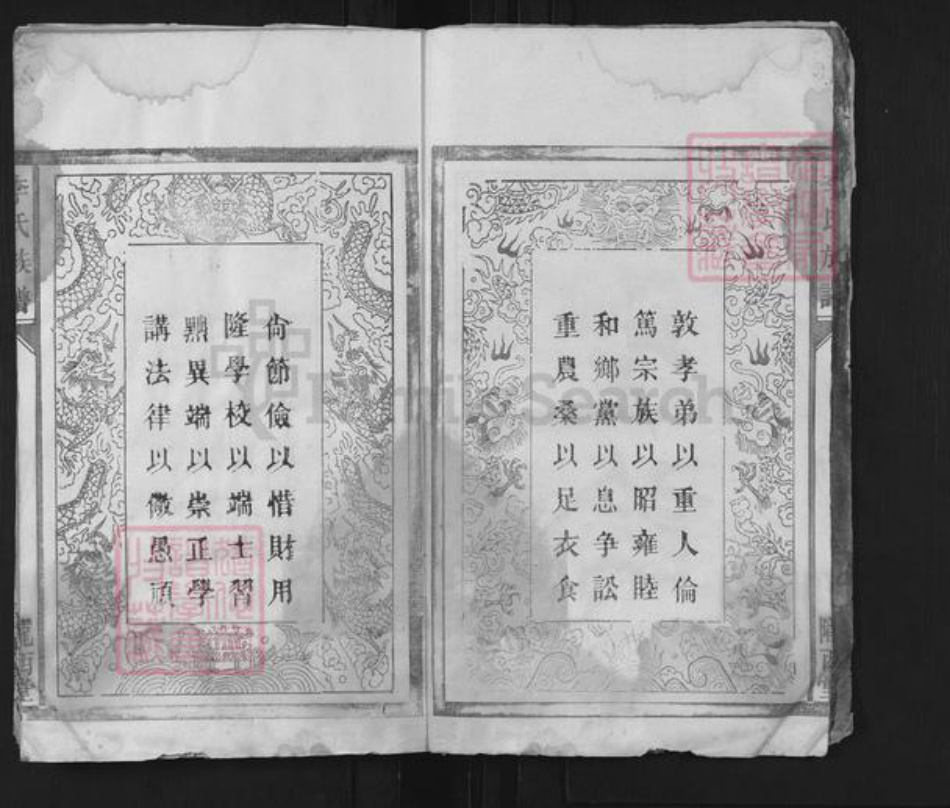 敦孝弟以重人倫
篤宗族以昭雍睦
和鄉黨以息争訟
重農桑以足衣食
尙節儉以惜財用
隆學校以端士習
黜異端以崇正學
講法律以儆愚頑
李氏族譜
隴西堂
FamilySearch